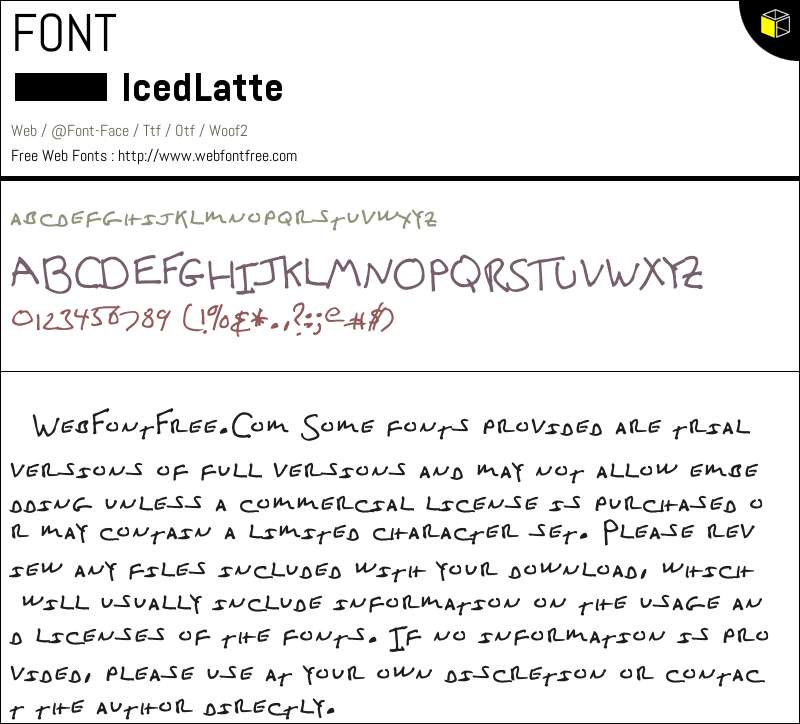 FONT
IcedLatte
Web / @Font-Face / Ttf / Otf / Woof2
Free Web Fonts : http://www.webfontfree.com
ABCDEFGHIJKLMNOPQRSTUVWXYZ
ABCDEFGHIJKLMNOPQRSTUVWXYZ
0123456789 (!%&*.,?:;@#$)
WebFontFree.Com Some fonts provided are trial
versions of full versions and may not allow embe
dding unless a commercial license is purchased o
r may contain a limited character set. Please rev
iew any files included with your download, which
will usually include information on the usage an
d licenses of the fonts. If no information is pro
vided, please use at your own discretion or contac
t the author directly.